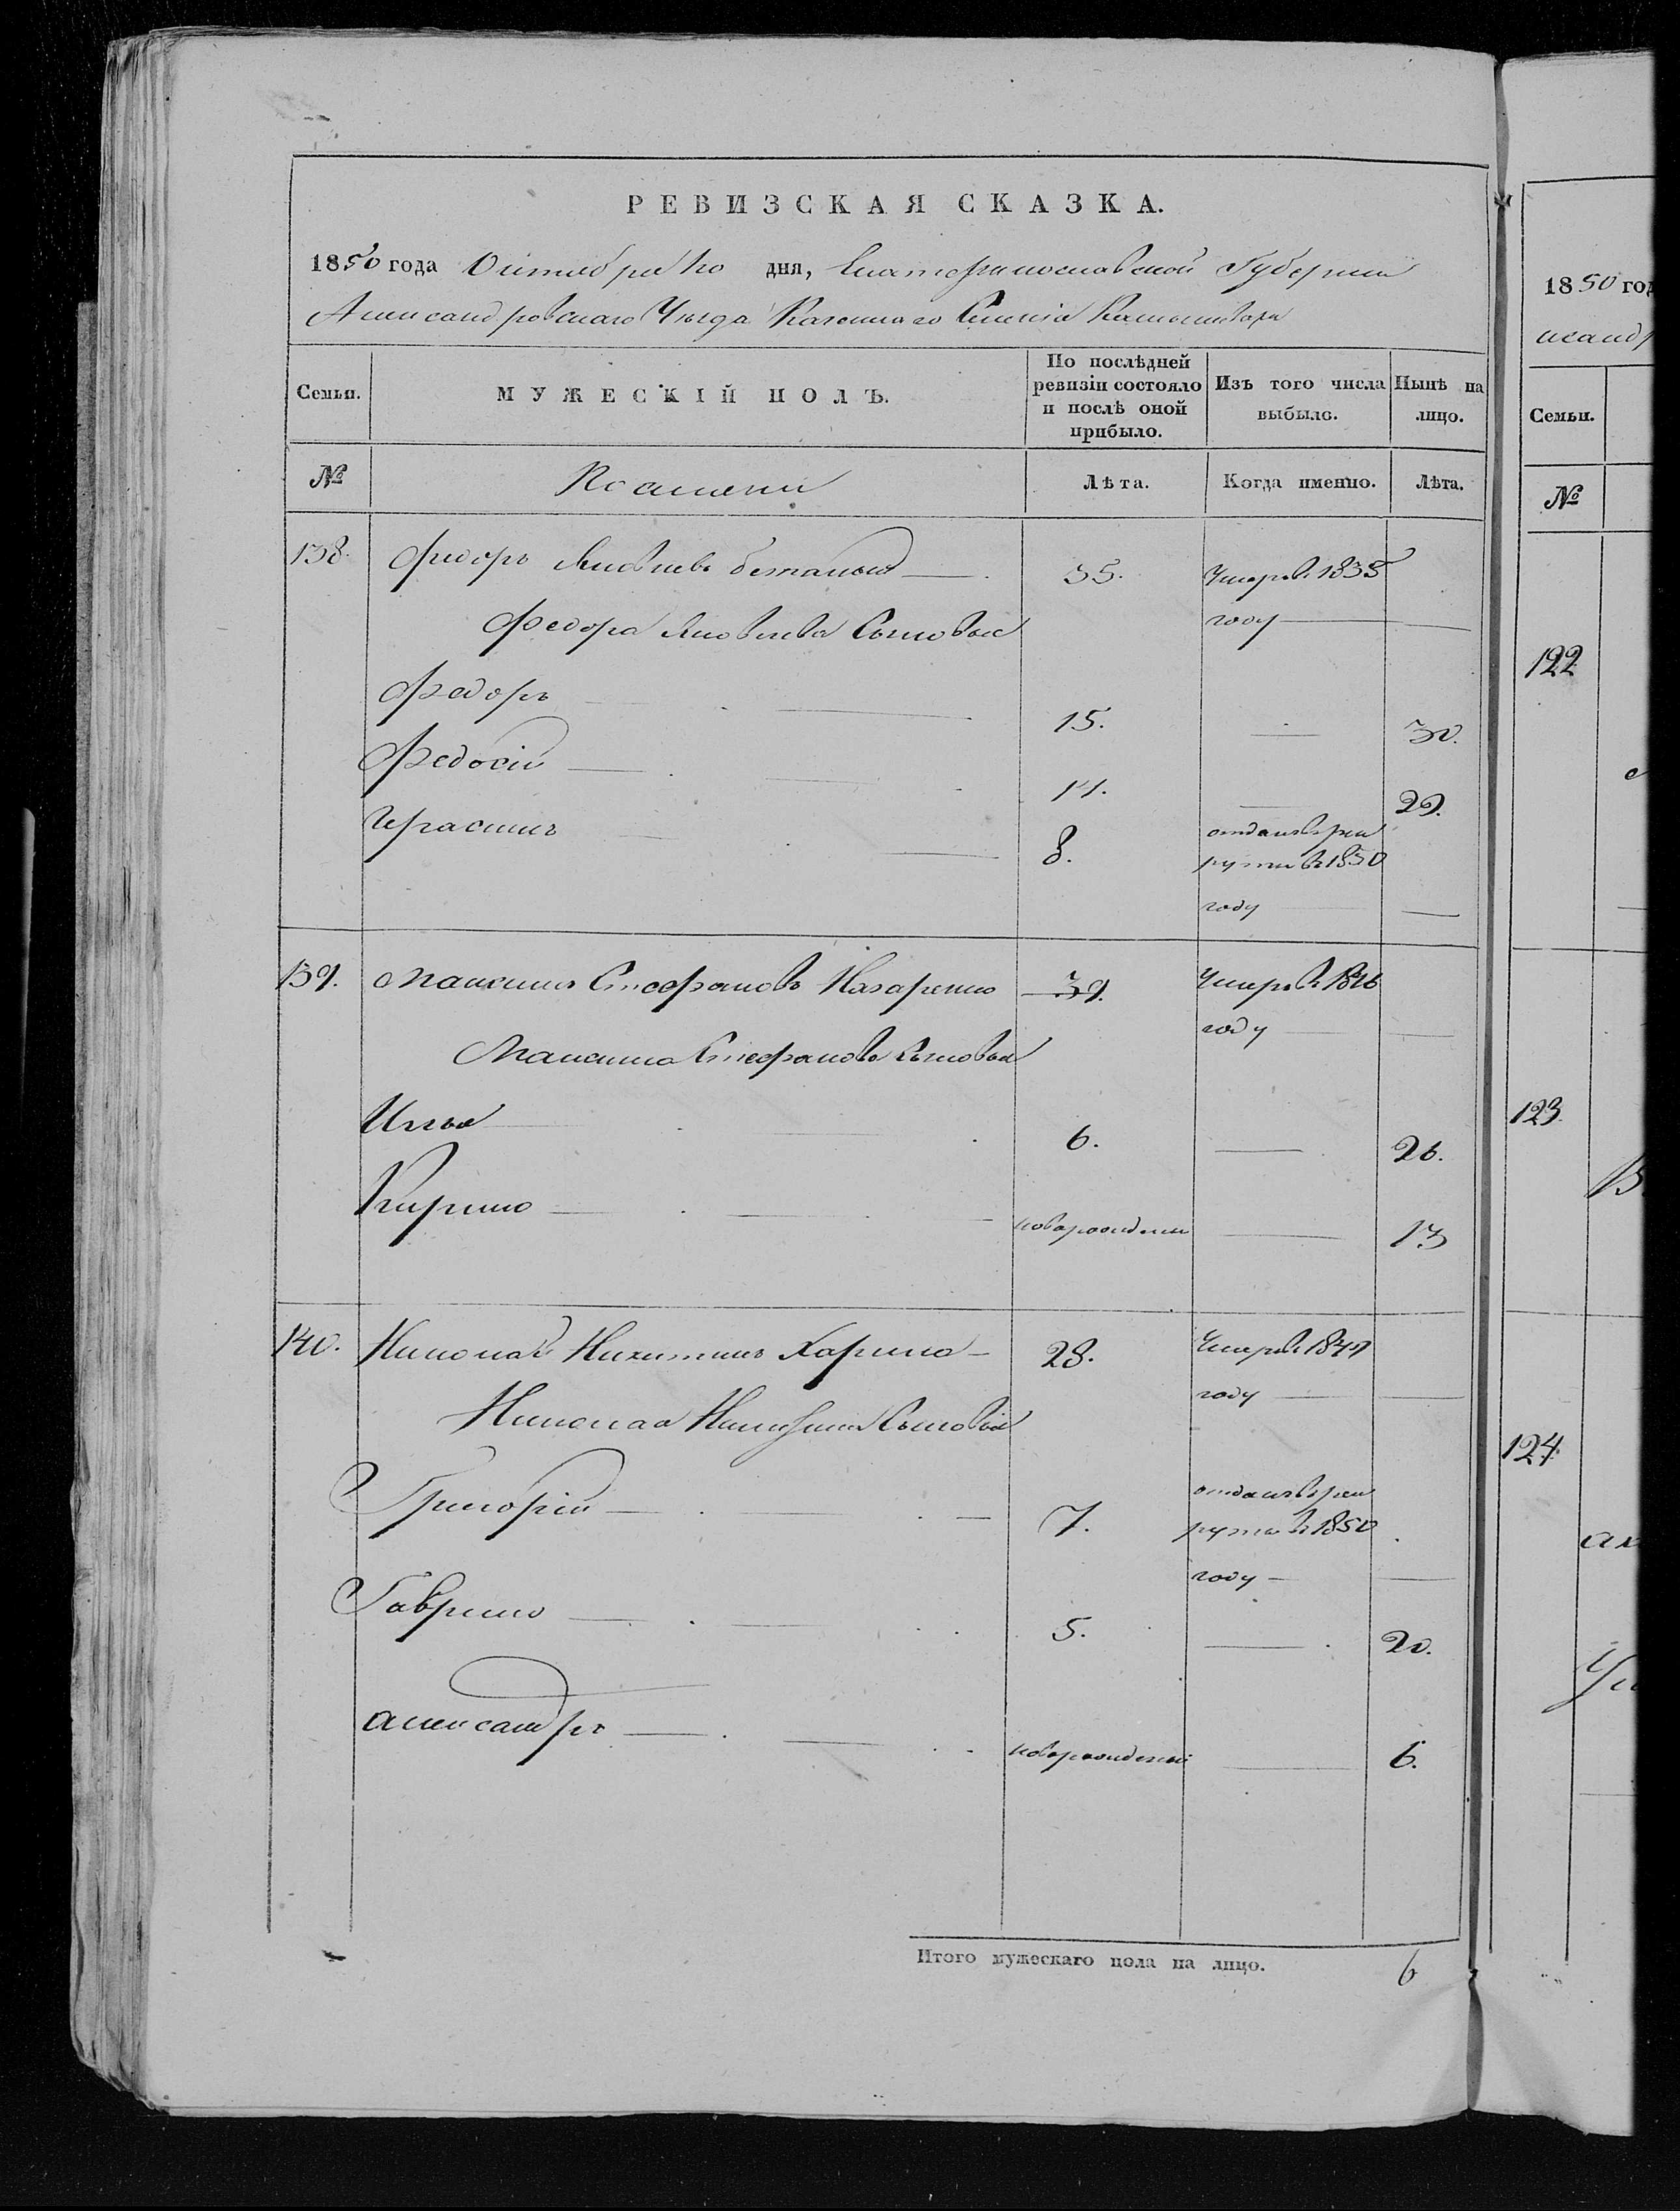 РЕВИЗСКАЯ СКАЗКА.
1850 года Октября 10 дня, Екатеринославской Губернии
Александровскаго Уѣзда Казеннаго Селенія
Семьи.
МУЖЕСКІЙ ПОЛЪ.
По послѣдней ревизіи состояло и послѣ оной прибыло.
Изъ того числа выбыло.
Нынѣ на лицо.
№
Лѣта.
Когда именно.
Лѣта.
138. Федоръ Яковлевъ 35. Умеръ въ 1835
году
Федора Яковлева Сыновья
Федоръ 15. 30.
Федосій 14. 29.
Герасимъ 8. отданъ въ рек
руты въ 1850
году
139. Максимъ Стефановъ Назаренко 39. Умеръ въ 1846
году
Максима Стефанова Сыновья
Илья 6. 26.
Кирило новорожденъ 13
140. Николай Никитинъ Харина 28. Умеръ въ 1849
году
Николая Никитина Сыновья
Григорій 7. отданъ въ рек
руты въ 1850
году
Гаврило 5. 20.
Александръ новорожденный 6.
Итого мужескаго пола на лицо. 6
1850 год
ксандр
Семьи.
№
122
123.
124.